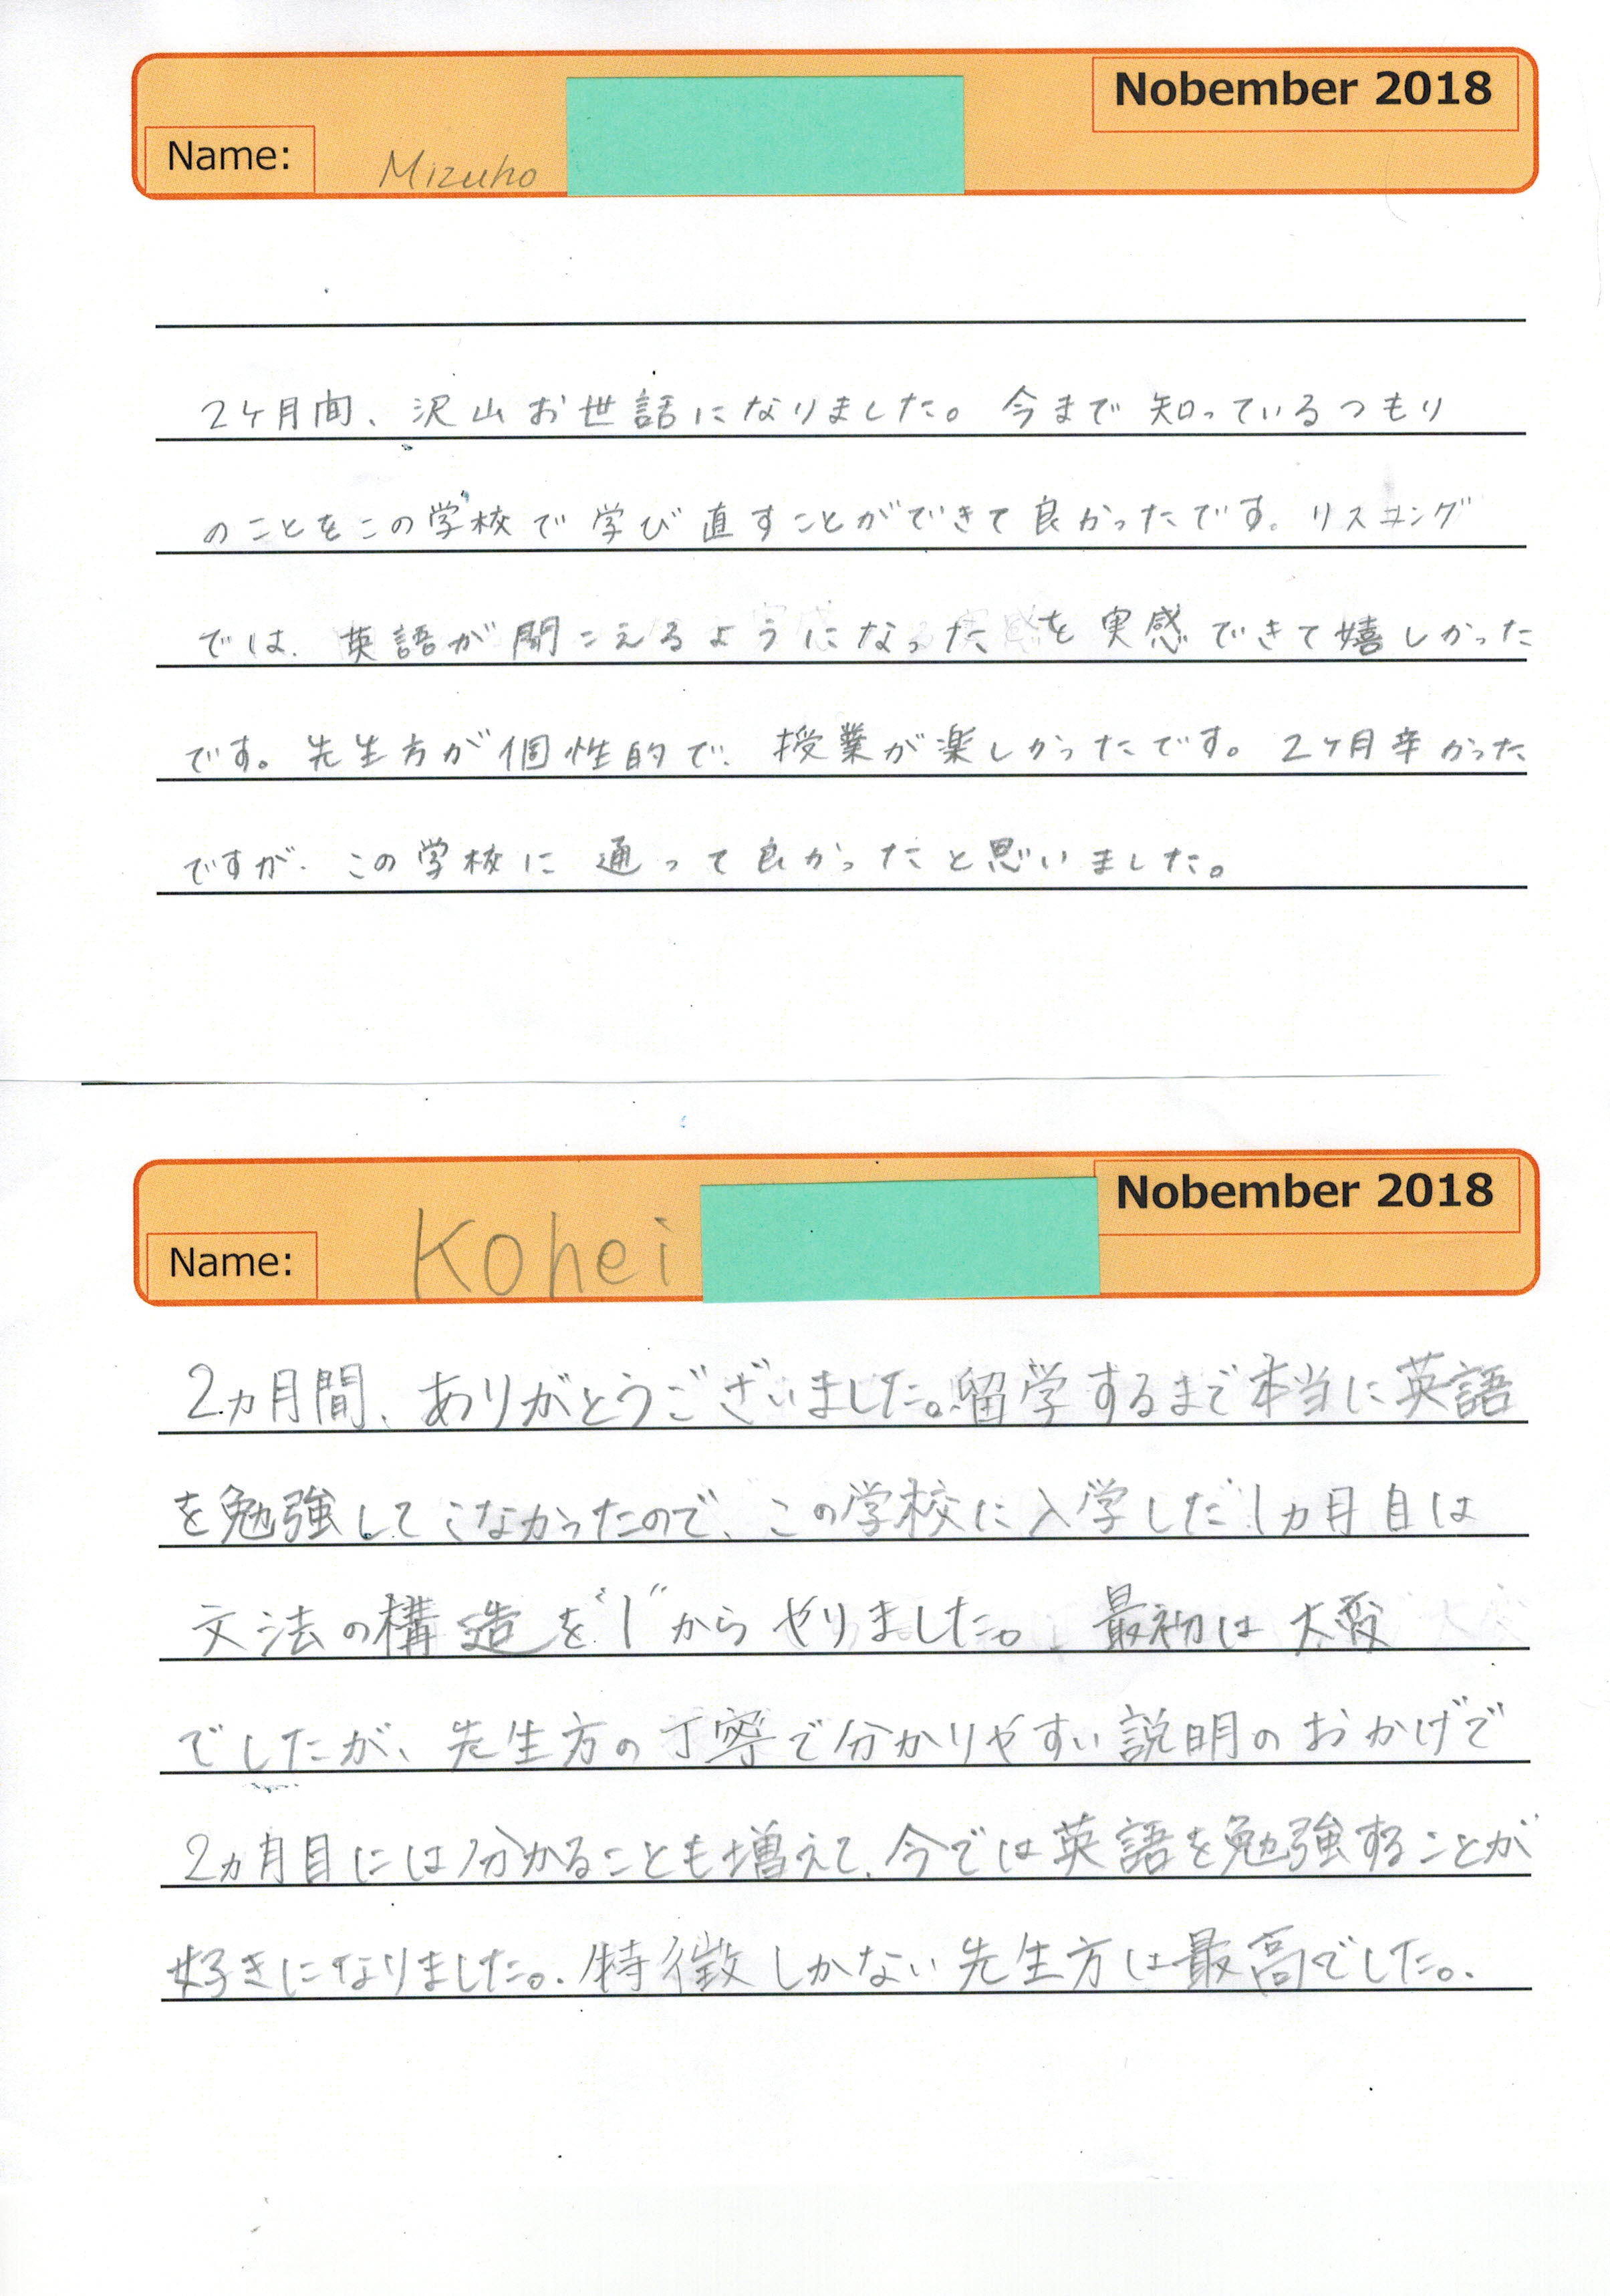 Nobember 2018
Name: Mizuho
2ケ月間、沢山お世話になりました。今まで知っているつもり
のことをこの学校で学び直すことができて良かったです。リスニング
では、英語が聞こえるようになったを実感できて嬉しかった
です。先生方が個性的で、授業が楽しかったです。2ヶ月辛かった
ですが、この学校に通って良かったと思いました。
Nobember 2018
Name: Kohei
2ヵ月間、ありがとうございました。留学するまで本当に英語
を勉強してこなかったので、この学校に入学した1ヵ月目は
文法の構造を"1"からやりました。最初は大変
でしたが、先生方の丁寧で分かりやすい説明のおかげで
2ヵ月目には分かることも増えて、今では英語を勉強することが
好きになりました。特徴しかない先生方は最高でした。